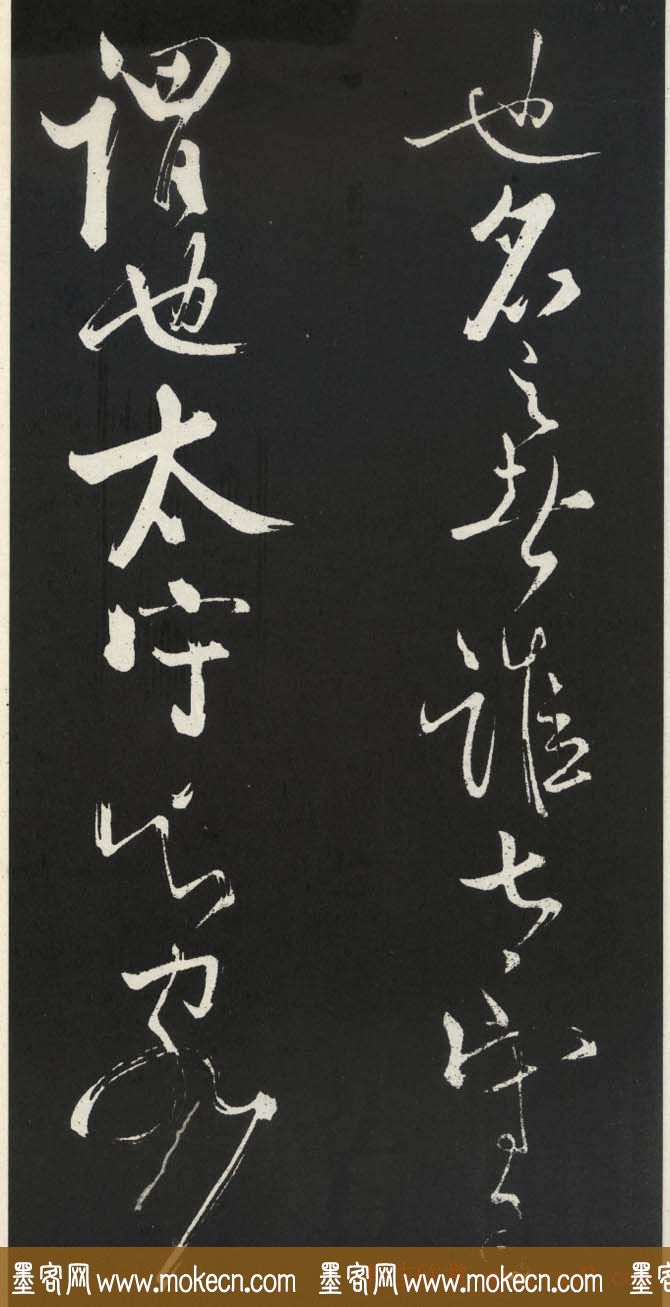 也名之者誰太守自
謂也太守與客
墨客网 www.mokecn.com 墨客网 www.mokecn.com 墨客